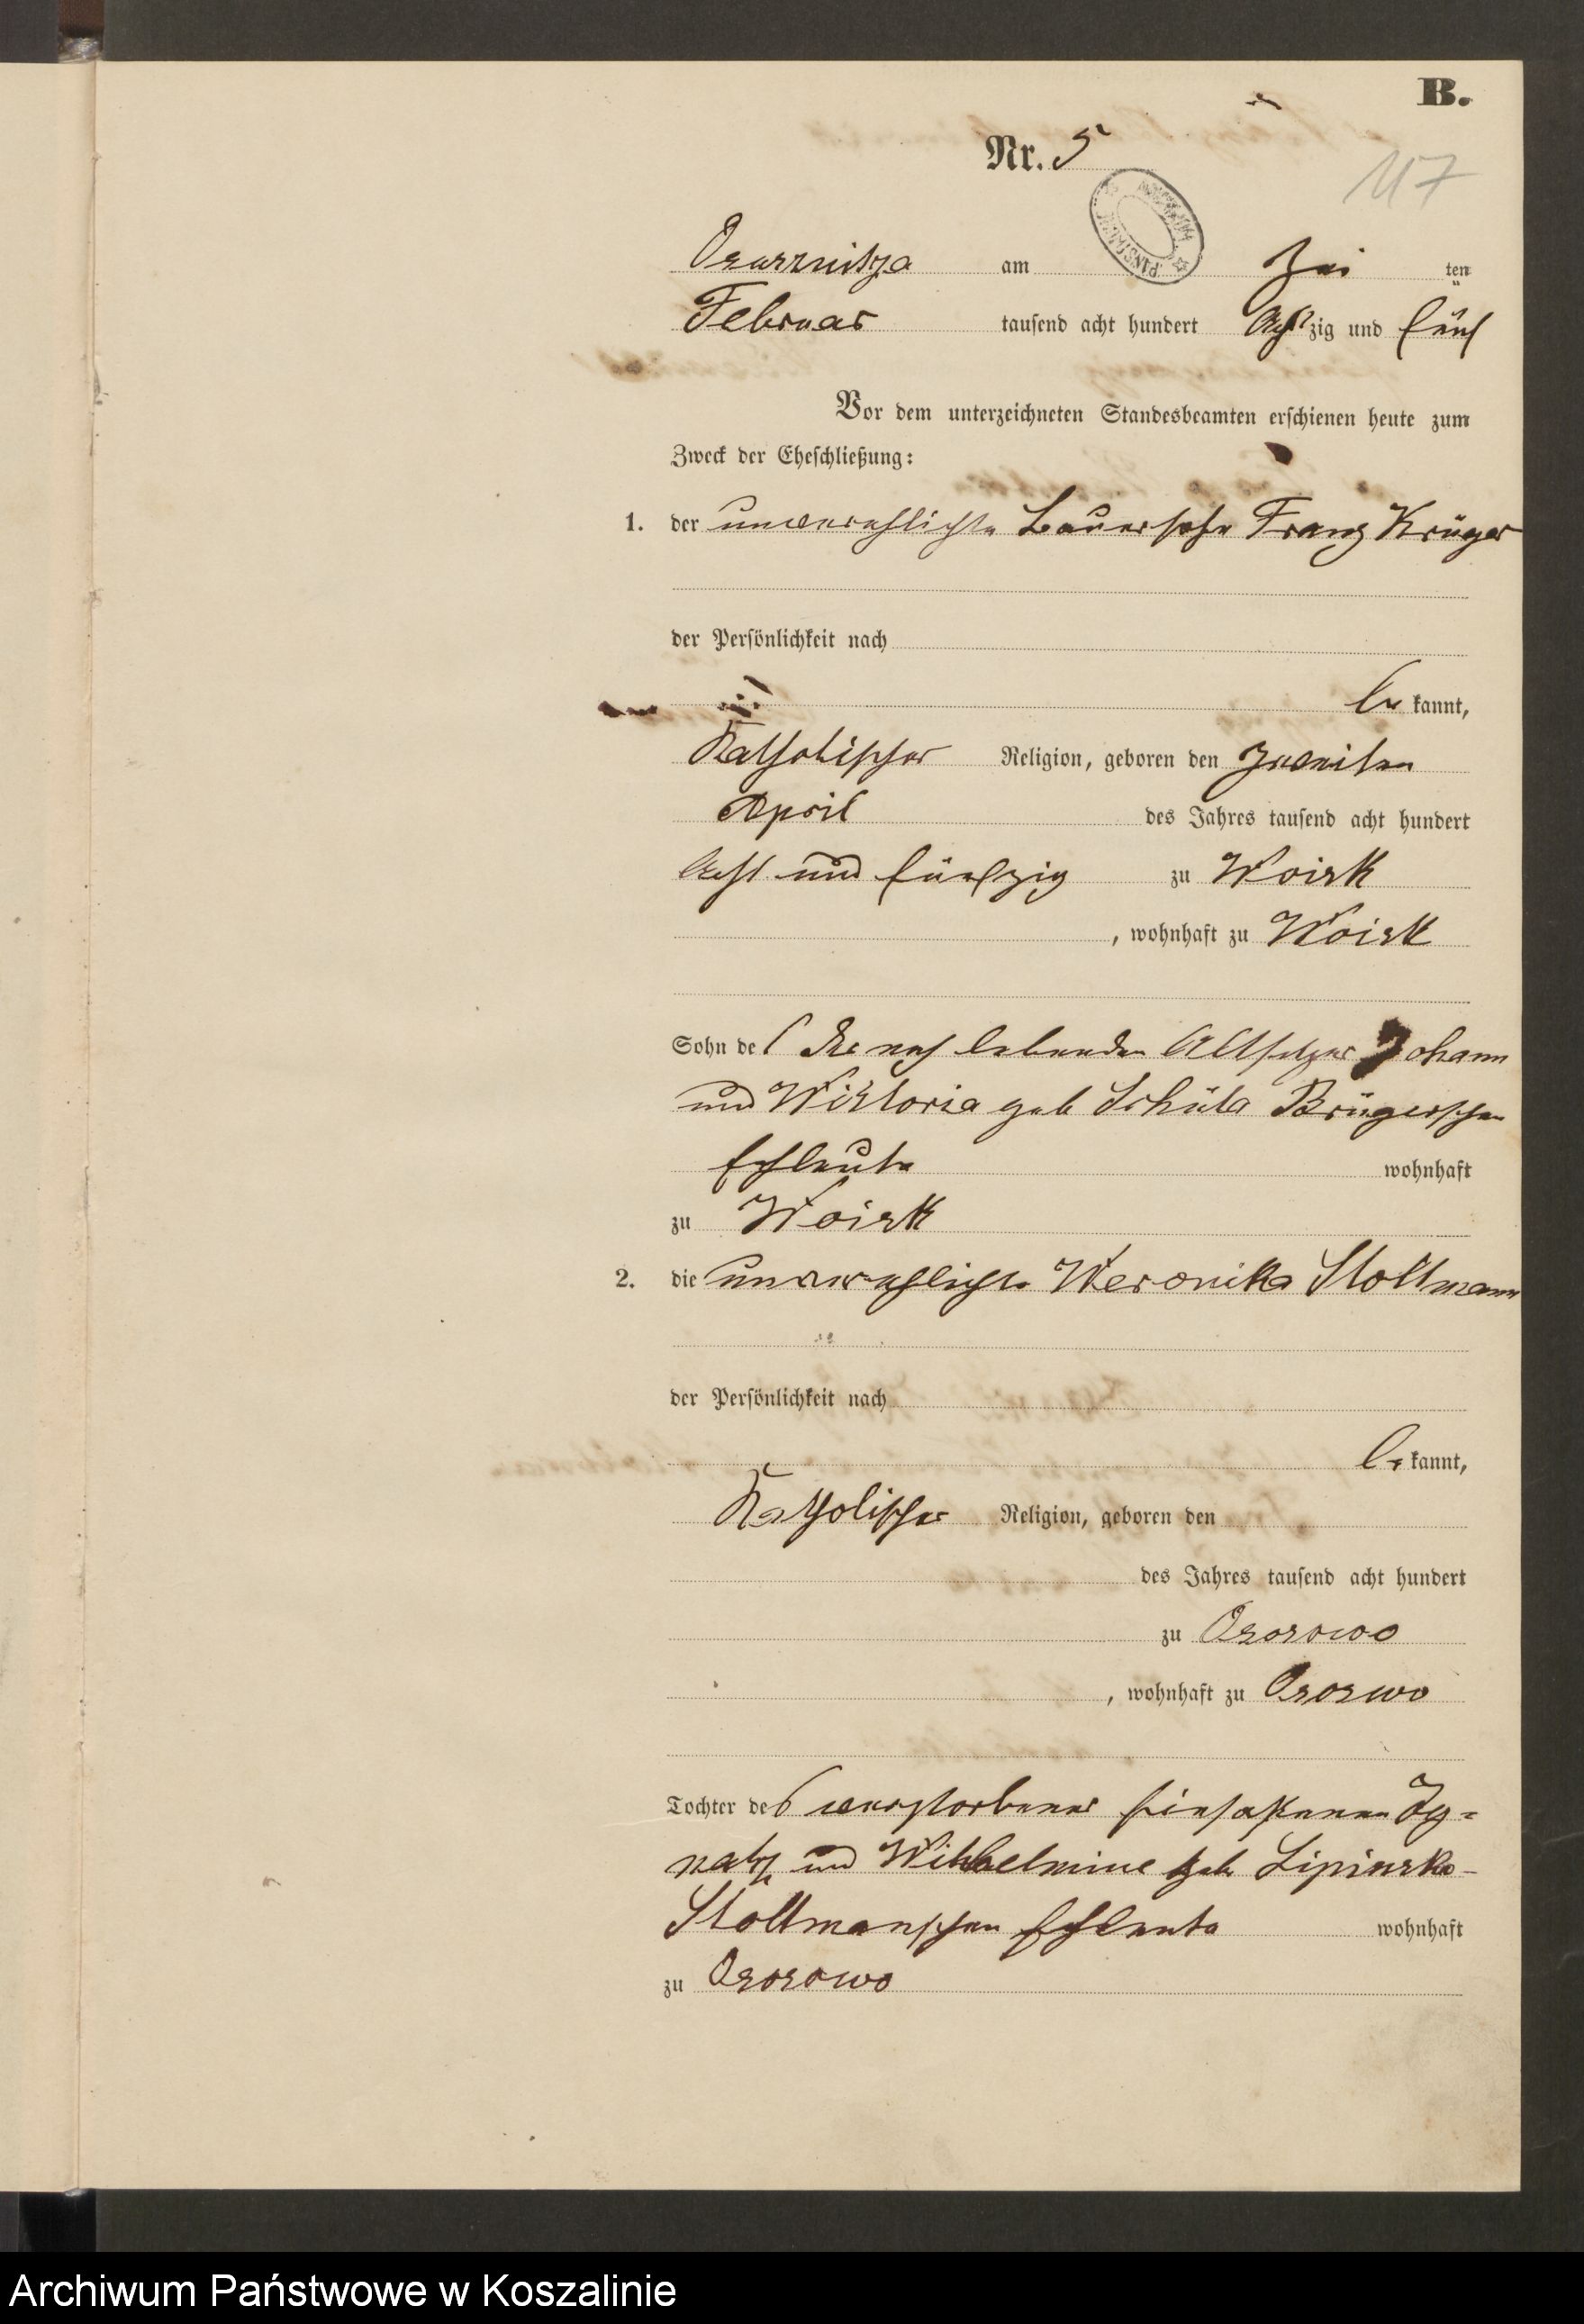 B.
Nr. 5
117
Osusznitza am Zwei ten
Februar tausend acht hundert Achtzig und fünf
Vor dem unterzeichneten Standesbeamten erschienen heute zum
Zweck der Eheschließung:
1. der unverehlichte Bauersohn Franz Krüger
der Persönlichkeit nach
be kannt,
Katholischer Religion, geboren den zweiten
April des Jahres tausend acht hundert
Acht und fünfzig zu Woisk
, wohnhaft zu Woisk
Sohn der noch lebenden Altsitzer Johann
und Wiktoria geb Schüla Krügerschen
Eheleute wohnhaft
zu Woisk
2. die unverehlichte Weronika Stoltmann
der Persönlichkeit nach
be kannt,
Katholischer Religion, geboren den
des Jahres tausend acht hundert
zu Ososowo
, wohnhaft zu Ososwo
Tochter der verstorbener Einsaßenen Ig=
natz und Wilhelmine geb Lipinska-
Stoltmanschen Eheleute wohnhaft
zu Ososowo
Archiwum Państwowe w Koszalinie